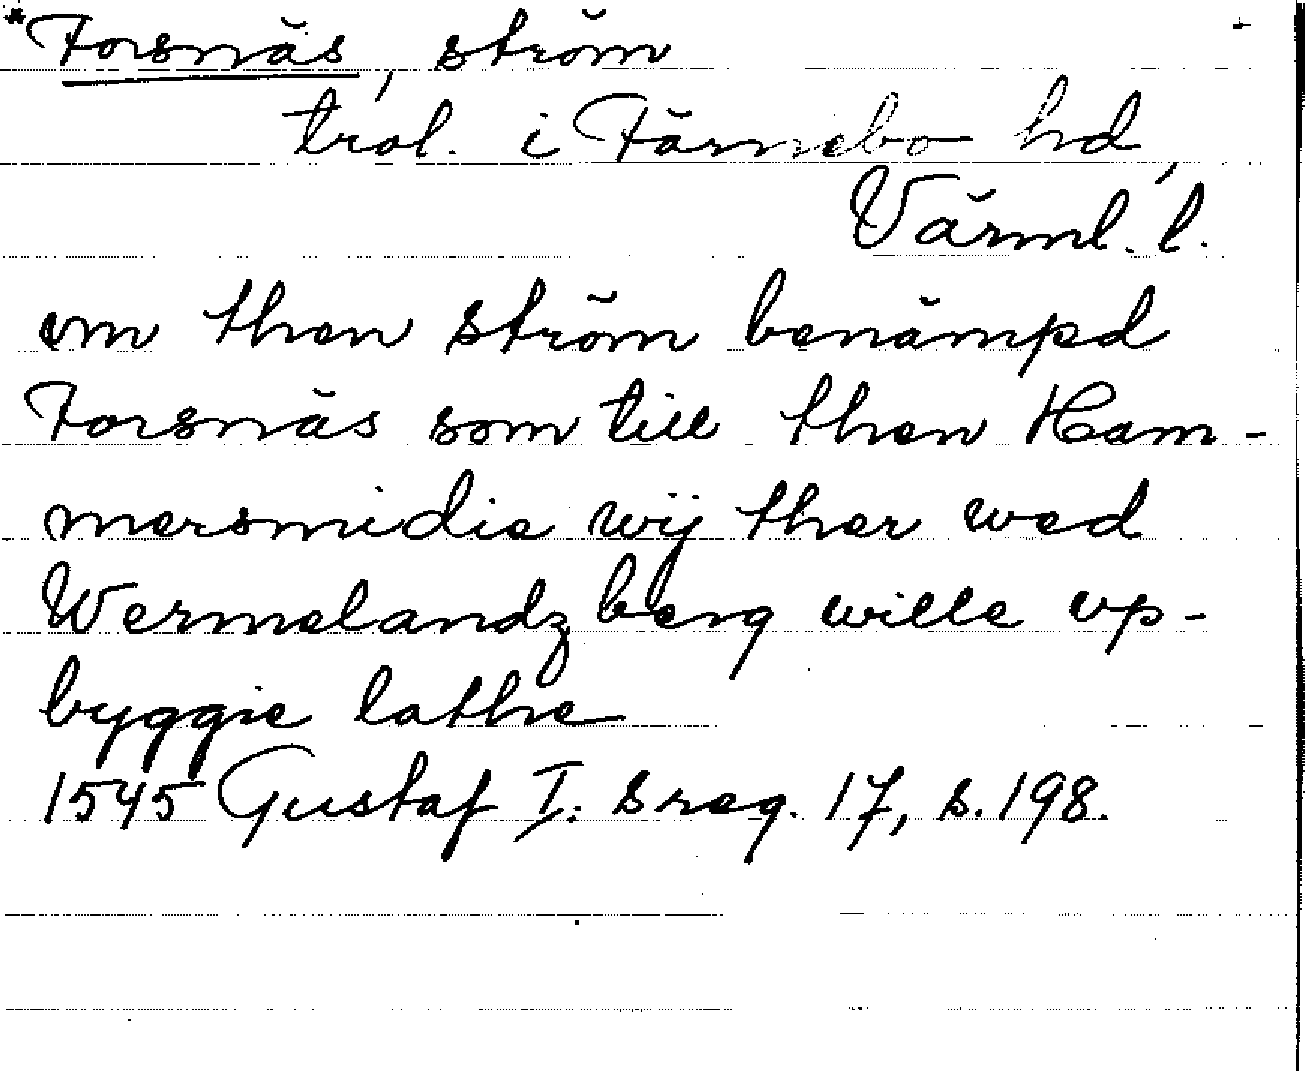 *Forsnäs, ström
trol. i Färnebo hd,
Värml. l.
om then ström benämpd
Forsnäs som till then Ham-
mersmidie wij ther wed
Wermelandz berg wille vp-
byggie lathe
1545 Gustaf I: s reg. 17, s. 198.